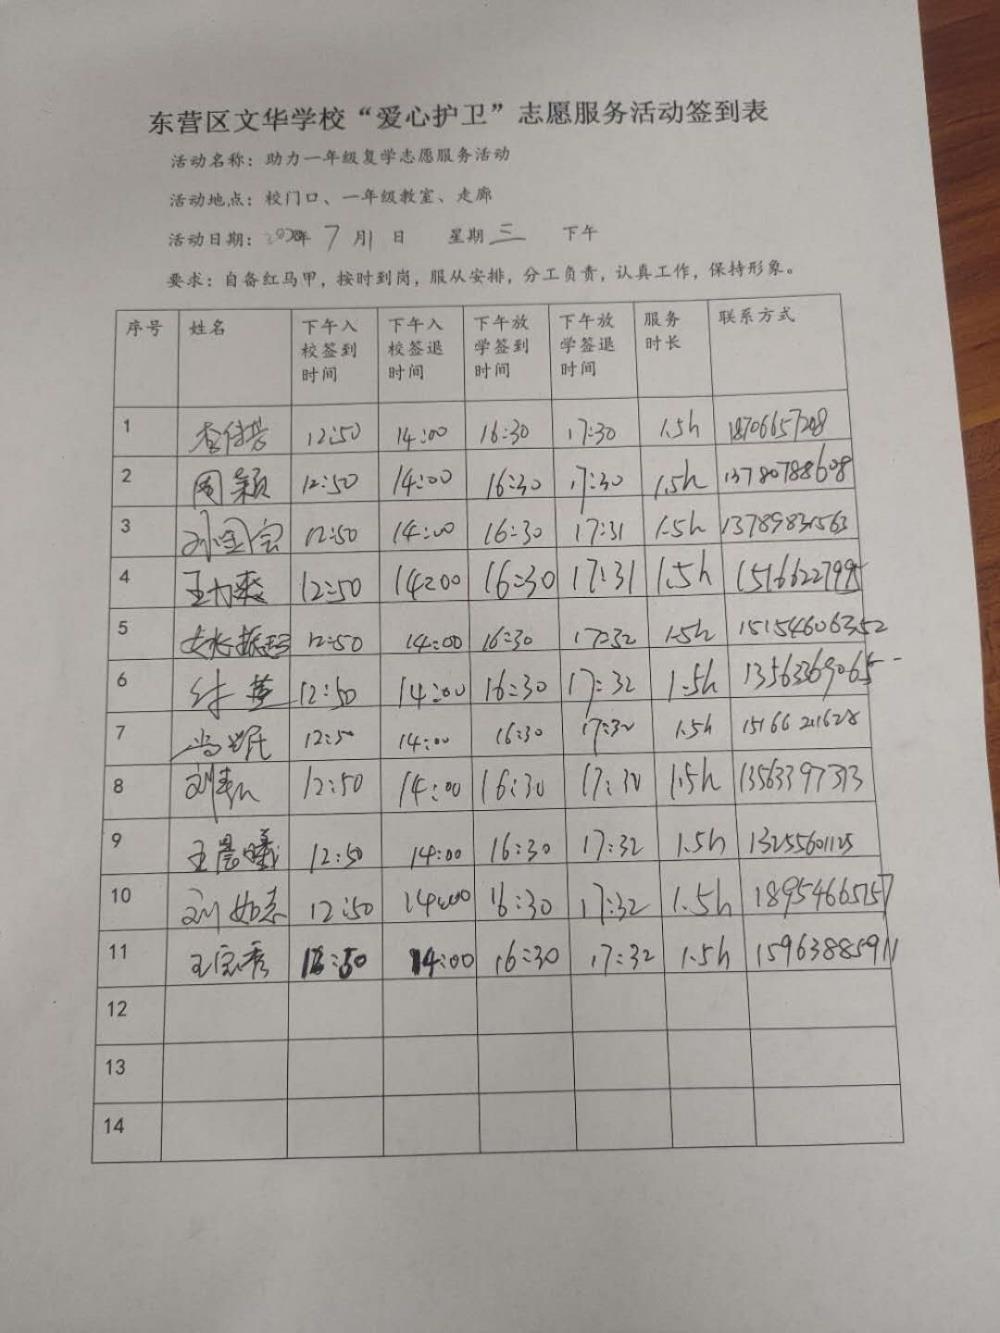 东营区文华学校“爱心护卫”志愿服务活动签到表
活动名称：助力一年级复学志愿服务活动
活动地点：校门口、一年级教室、走廊
活动日期：2020年 7 月 1 日 星期 三 下午
要求：自备红马甲，按时到岗，服从安排，分工负责，认真工作，保持形象。
序号 姓名 下午入校签到时间 下午入校签退时间 下午放学签到时间 下午放学签退时间 服务时长 联系方式
1 12:50 14:00 16:30 17:30 1.5h 18706657208
2 周颖 12:50 14:00 16:30 17:30 1.5h 13780788608
3 12:50 14:00 16:30 17:31 1.5h 13789831563
4 12:50 14:00 16:30 17:31 1.5h 15166227995
5 12:50 14:00 16:30 17:32 1.5h
6 12:50 14:00 16:30 17:32 1.5h 13563369065
7 12:50 14:00 16:30 17:32 1.5h 15166211628
8 12:50 14:00 16:30 17:30 1.5h 13563397373
9 王晨曦 12:50 14:00 16:30 17:32 1.5h 13255601125
10 12:50 14:00 16:30 17:32 1.5h 18954665757
11 王宗秀 14:00 16:30 17:32 1.5h 15963885911
12
13
14